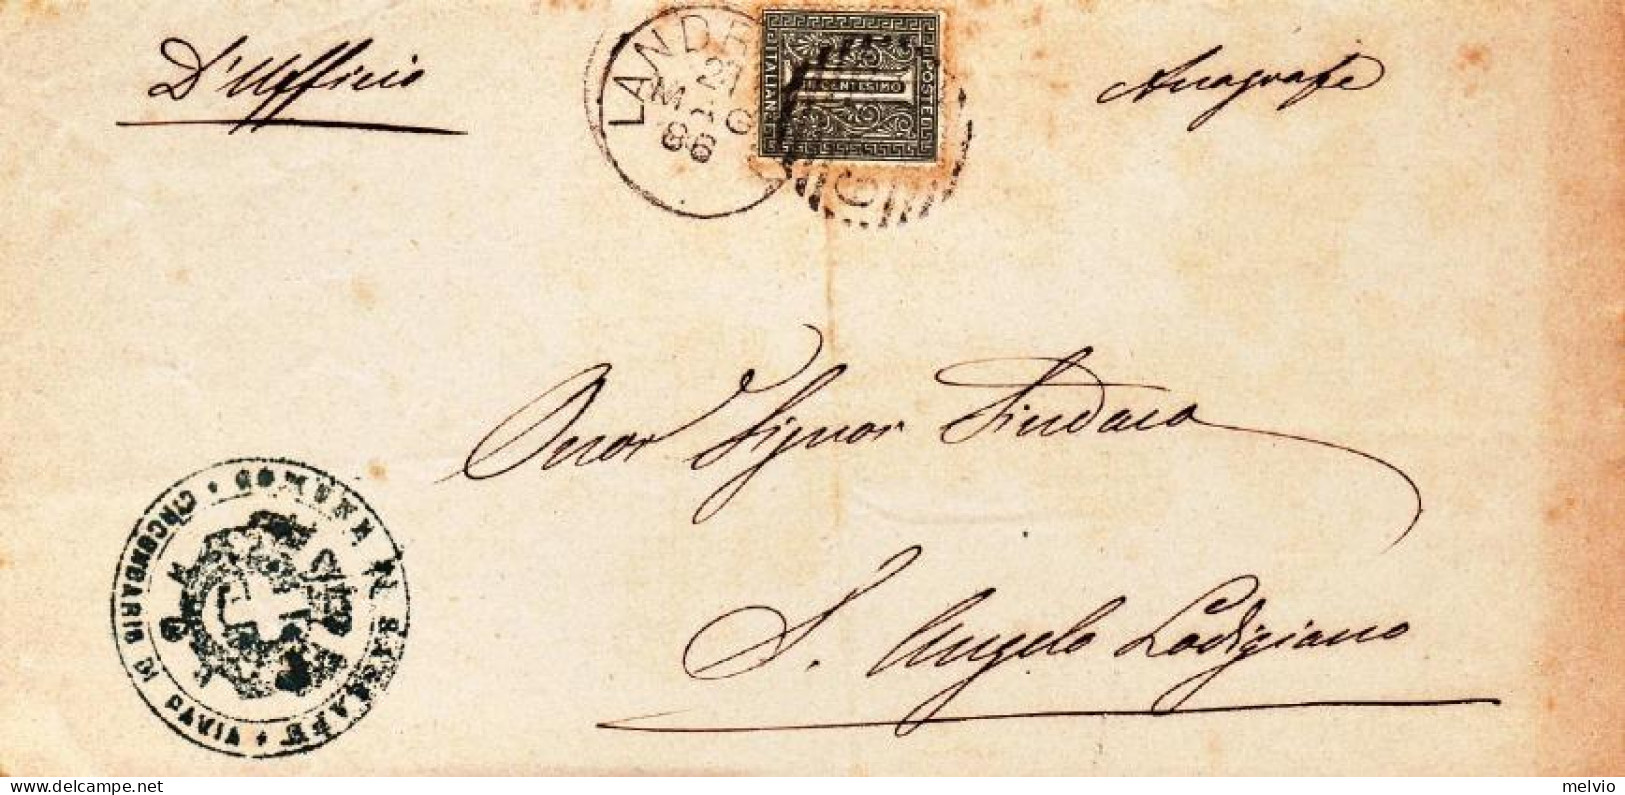 D'Ufficio
LANDR
27
MAG
86
POSTE
ITALIANE
CENTESIMO
Anagrafe
Onor Signor Sindaco
S. Angelo Lodigiano
COMUNE
CIRCONDARIO DI PAVIA
delcampe.net
melvio